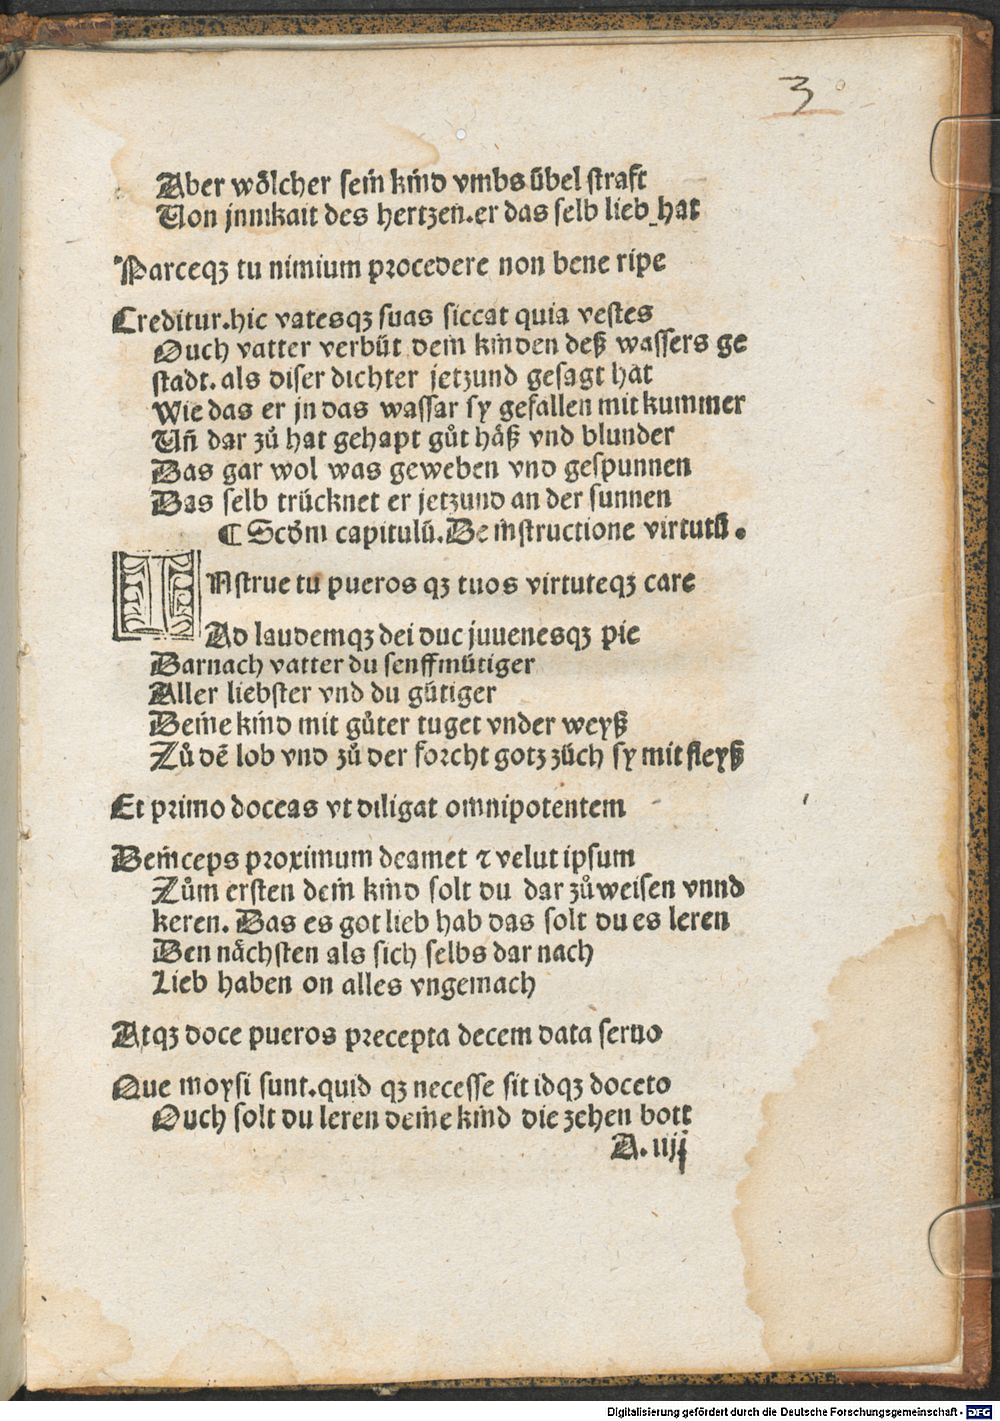 3
Aber woͤlcher sein kind vmbs uͤbel straft
Von jnnikait des hertzen.er das selb lieb hat
Parceqʒ tu nimium procedere non bene ripe
Creditur.hic vatesqʒ suas siccat quia vestes
Ouch vatter verbüt dein kinden deß wassers ge
stadt. als diser dichter jetzund gesagt hat
Wie das er jn das wassar sy gefallen mit kummer
Vñ dar zuͦ hat gehapt guͦt haͤß vnd blunder
Das gar wol was geweben vnd gespunnen
Das selb trücknet er jetzund an der sunnen
¶ Scd̄m capitulū. De instructione virtutū.
INstrue tu pueros qʒ tuos virtuteqʒ care
Ad laudemqʒ dei duc juuenesqʒ pie
Darnach vatter du senffmütiger
Aller liebster vnd du gütiger
Deine kind mit guͦter tuget vnder weyß
Zuͦ dē lob vnd zuͦ der forcht gotz züch sy mit fleyß
Et primo doceas vt diligat omnipotentem
Deinceps proximum deamet ⁊ velut ipsum
Zuͦm ersten dein kind solt du dar zuͦ weisen vnnd
keren. Das es got lieb hab das solt du es leren
Den naͤchsten als sich selbs dar nach
Lieb haben on alles vngemach
Atqʒ doce pueros precepta decem data seruo
Que moysi sunt.quid qʒ necesse sit idqʒ doceto
Ouch solt du leren deine kind die zehen bott
A.iiij
Digitalisierung gefördert durch die Deutsche Forschungsgemeinschaft - DFG